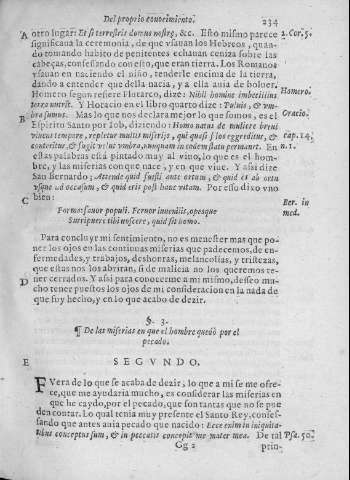 Del proprio conocimiento. 234
A otro lugar: Et si terrestris domus nostra, &c. Esto mismo parece 2. Cor. 5.
significaua la ceremonia, de que vsauan los Hebreos, quan-
do tomando habito de penitentes echauan ceniza sobre las
cabeças, confessando con esto, que eran tierra. Los Romanos
vsauan en naciendo el niño, tenderle encima de la tierra,
dando a entender que della nacia, y a ella auia de boluer.
Homero segun refiere Plotarco, dize: Nihil homine imbecillius Homero.
terra nutrit. Y Horacio en el libro quarto dize: Puluis, & vm-
bra sumus. Mas lo que nos declara mejor lo que somos, es el Oracio.
B Espiritu Santo por Iob, diziendo: Homo natus de muliere breui
viuens tempore, repletur multis miserijs, qui quasi flos egreditur, & cap. 14.
conteritur, & fugit velut vmbra, nunquam in eodem statu permanet. En n. 1.
estas palabras està pintado muy al viuo, lo que es el hom-
bre, y las miserias con que nace, y en que viue. Y assi dize
San Bernardo: Attende quid fuisti ante ortum, & quid es ab ortu
vsque ad occasum, & quid eris post hanc vitam. Por esso dixo vno
C bien: Ber. in
med.
Forma: fauor populi. Feruor iuuenilis, opesque
Surripuere tibi noscere, quid sit homo.
Para concluyr mi sentimiento, no es menester mas que po-
ner los ojos en las continuas miserias que padecemos, de en-
fermedades, y trabajos, deshonras, melancolias, y tristezas,
que estas nos abriran, si de malicia no los queremos te-
D ner cerrados. Y assi para conocerme a mi mismo, desseo mu-
cho tener puestos los ojos de mi consideracion en la nada de
que fuy hecho, y en lo que acabo de dezir.
§. 3.
¶ De las miserias en que el hombre quedò por el
pecado.
E SEGVNDO.
FVera de lo que se acaba de dezir, lo que a mi se me ofre-
ce, que me ayudaria mucho, es considerar las miserias en
que he caydo, por el pecado, que son tantas que no se pue
den contar. Lo qual tenia muy presente el Santo Rey, confes-
sando que antes auia pecado que nacido: Ecce enim in iniquita-
tibus conceptus sum, & in peccatis concepit me mater mea. De tal Psa. 50.
Gg 2 prin-